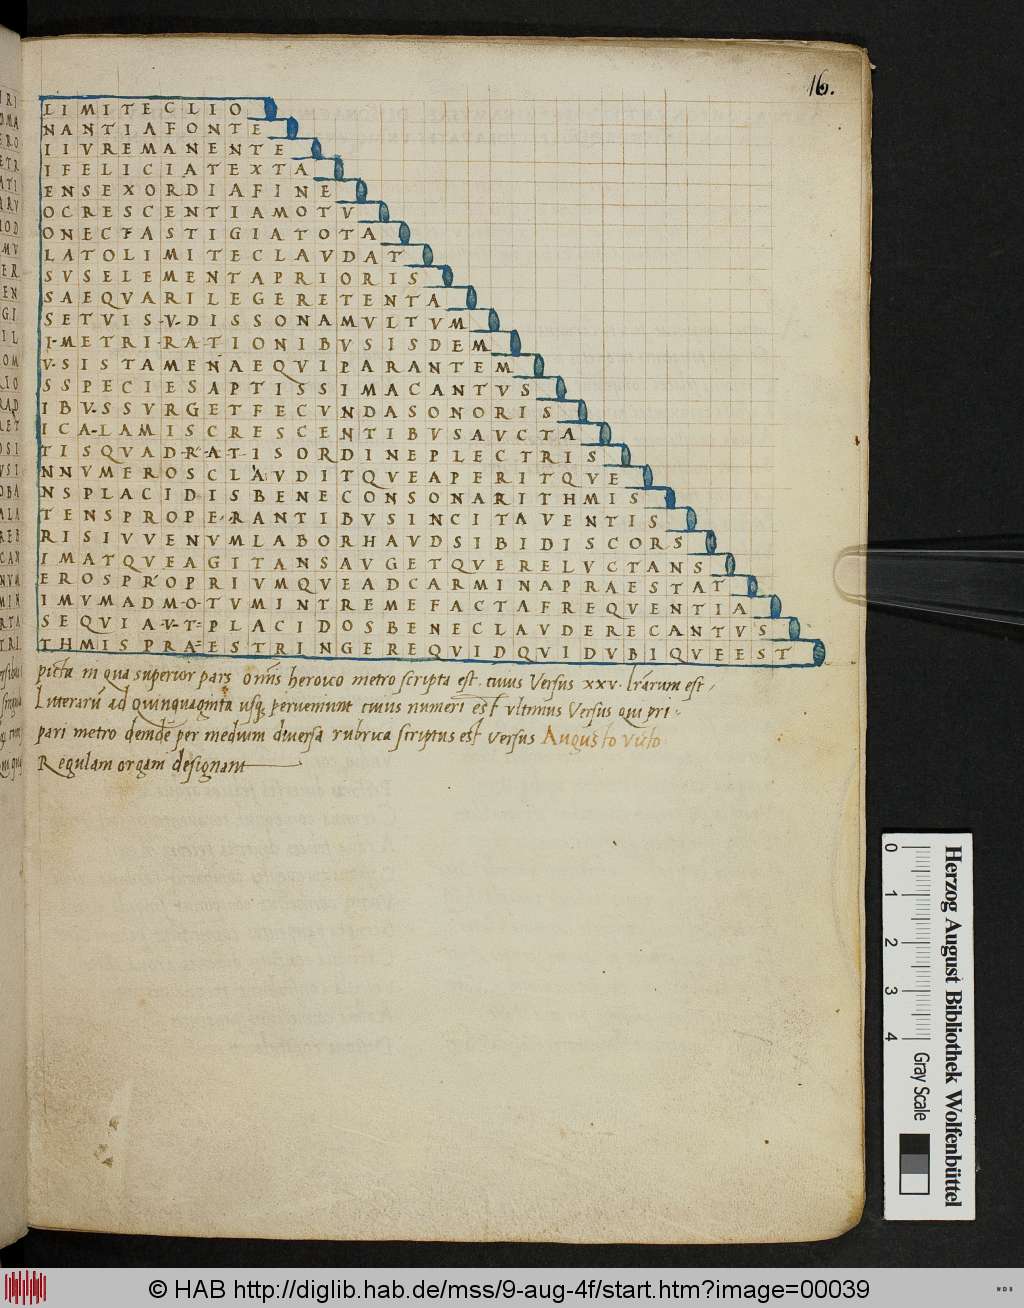 16.
LIMITECLIO
NANTIAFONTE
IIVREMANENTE
IFELICIATEXTA
ENSEXORDIAFINE
OCRESCENTIAMOTV
ONECFASTIGIATOTA
LATOLIMITECLAVDAT
SVSELEMENTAPRIORIS
SAEQVARILEGERETENTA
SETVIS-V-DISSONAMVLTVM
I-METRI-RATIONIBVSISDEM
V-SISTAMENAEQVIPARANTEM
SSPECIESAPTISSIMACANTVS
IBV-SSVRGETFECVNDASONORIS
ICA-LAMISCRESCENTIBVSAVCTA
TISQVAD-R-AT-ISORDINEPLECTRIS
NNVMEROSCLAVDITQVEAPERITQVE
NSPLACIDISBENECONSONARITHMIS
TENSPROPE-RANTIBVSINCITAVENTIS
RISIVVENVMLABORHAVDSIBIDISCORS
IMATQVEAGITANSAVGETQVERELVCTANS
EROSPROPRIVMQVEADCARMINAPRAESTAT
IMVMADM-O-TVMINTREMEFACTAFREQVENTIA
SEQVIAV-T-PLACIDOSBENECLAVDERECANTVS
THMISPRA=ESTRINGEREQVIDQVIDVBIQVEEST
picta in qua superior pars om̃is heroico metro scripta est. cuius Versus xxv. lr̃arum est,
Litterarũ ad Quinquaginta usq perueniunt cuius numeri est vltimus Versus qui pri-
pari metro deinde per medium diuersa rubrica scriptus est versus Augusto victo
Regulam organi designant
0 1 2 3 4
Gray Scale
Herzog August Bibliothek Wolfenbüttel
© HAB http://diglib.hab.de/mss/9-aug-4f/start.htm?image=00039